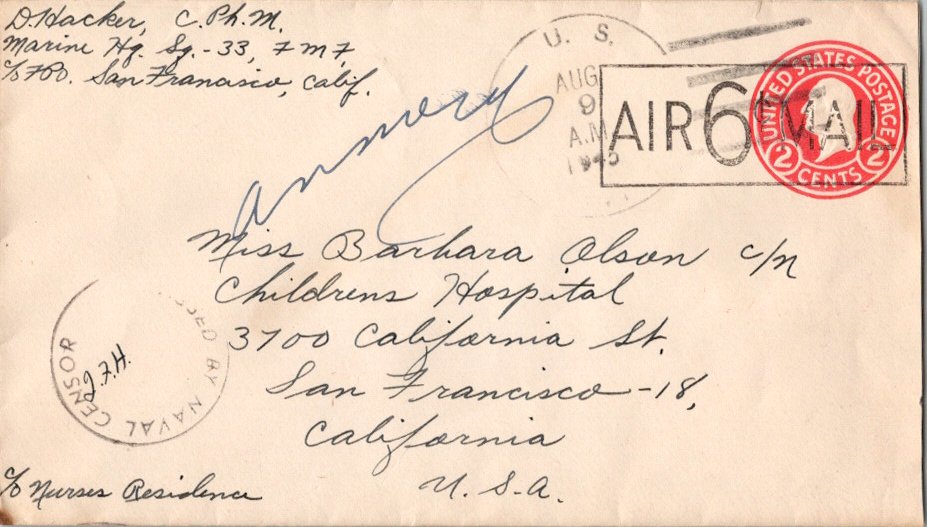 D. Hacker, C. Ph. M.
Marine Hq. Sq. - 33, F M F,
c/o FPO. San Francisco, Calif.
U. S.
AUG
9
A.M
1945
AIR 6¢ MAIL
UNITED STATES POSTAGE
2 CENTS 2
Miss Barbara Olson C/N
Childrens Hospital
3700 California St.
San Francisco - 18,
California
U. S. A.
BY NAVAL CENSOR
c/o Nurses Residence